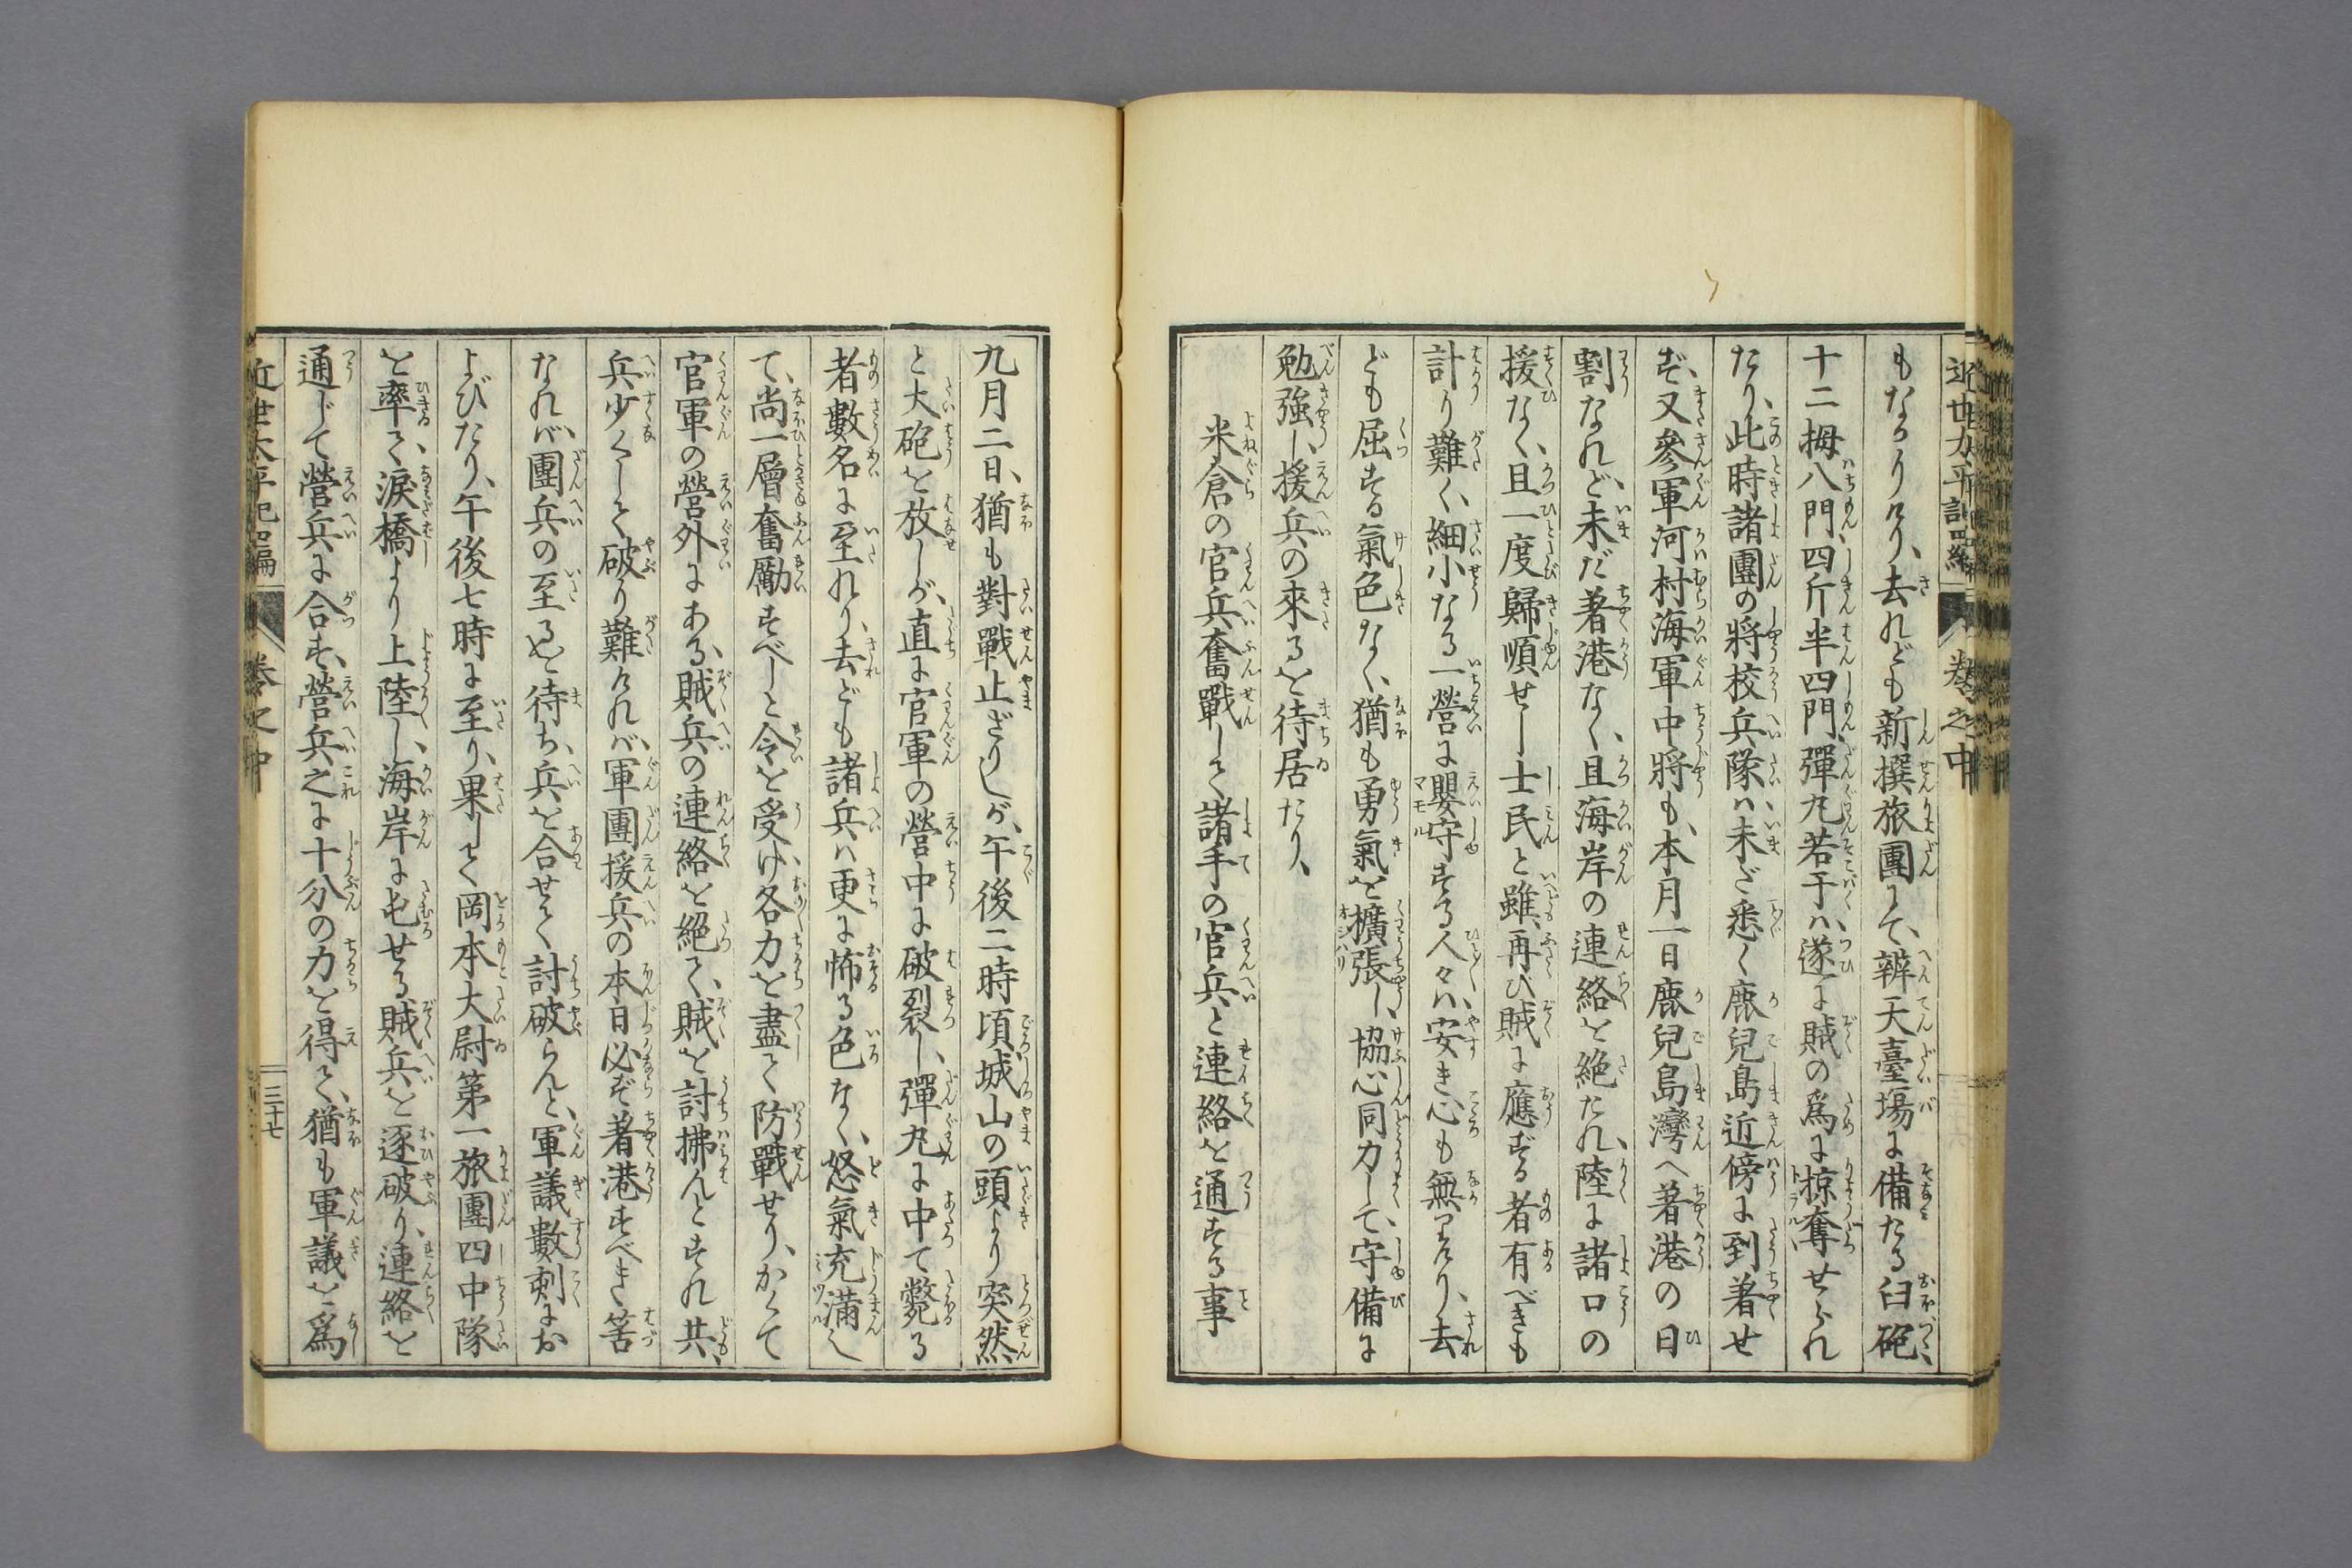 近世太平記四編　卷之中
もなかりけり、去れども新撰旅團にて、辨天臺場に備たる臼砲、
十二拇八門四斤半四門、彈丸若干ハ、遂に賊の爲に掠奪せられ
たり、此時諸團の將校兵隊ハ、未ダ悉く鹿兒島近傍に到着せ
ず、又參軍河村海軍中將も、本月一日鹿兒島灣へ着港の日
割なれど、未だ着港なく、且海岸の連絡を絶たれ、陸に諸口の
援なく、且一度歸順せし士民と雖、再び賊に應ずる者有べきも
計り難く、細小なる一營に嬰守する人々ハ、安き心も無りけり、去
ども屈する氣色なく、猶も勇氣を擴張し、協心同力して、守備に
勉強し、援兵の來るを待居たり、
米倉の官兵奮戰して諸手の官兵と連絡を通する事
九月二日、猶も對戰止ざりしが、午後二時頃城山の頭より突然、
と大砲を放しが、直に官軍の營中に破裂し、彈丸に中て斃る
者數名に至れり、去ども諸兵ハ更に怖る色なく、怒氣充滿し
て、尚一層奮勵すべしと令を受け、各力を盡て防戰せり、かくて
官軍の營外にある、賊兵の連絡を絕て、賊を討拂んとすれ共、
兵少くして破り難ければ、軍團援兵の本日必ず着港すべき筈
なれバ、團兵の至るを待ち、兵を合せて討破らんと、軍議數刻にお
よびたり、午後七時に至り、果して岡本大尉第一旅團四中隊
を率て、淚橋より上陸し、海岸に屯せる賊兵を逐破り、連絡を
通じて營兵に合す、營兵之に十分の力を得て、猶も軍議を爲
近世太平記四編　卷之中　三十七